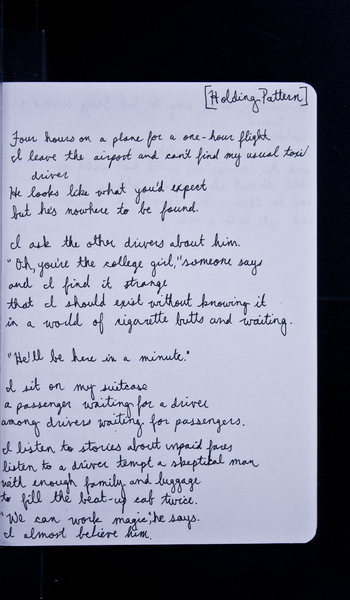 [Holding Pattern]
Four hours on a plane for a one-hour flight
I leave the airport and can't find my usual taxi
driver
He looks like what you'd expect
but he's nowhere to be found.
I ask the other drivers about him.
"Oh, you're the college girl," someone says
and I find it strange
that I should exist without knowing it
in a world of cigarette butts and waiting.
"He'll be here in a minute."
I sit on my suitcase
a passenger waiting for a driver
among drivers waiting for passengers.
I listen to stories about unpaid fares
listen to a driver tempt a skeptical man
with enough family and luggage
to fill the beat-up cab twice.
"We can work magic," he says.
I almost believe him.